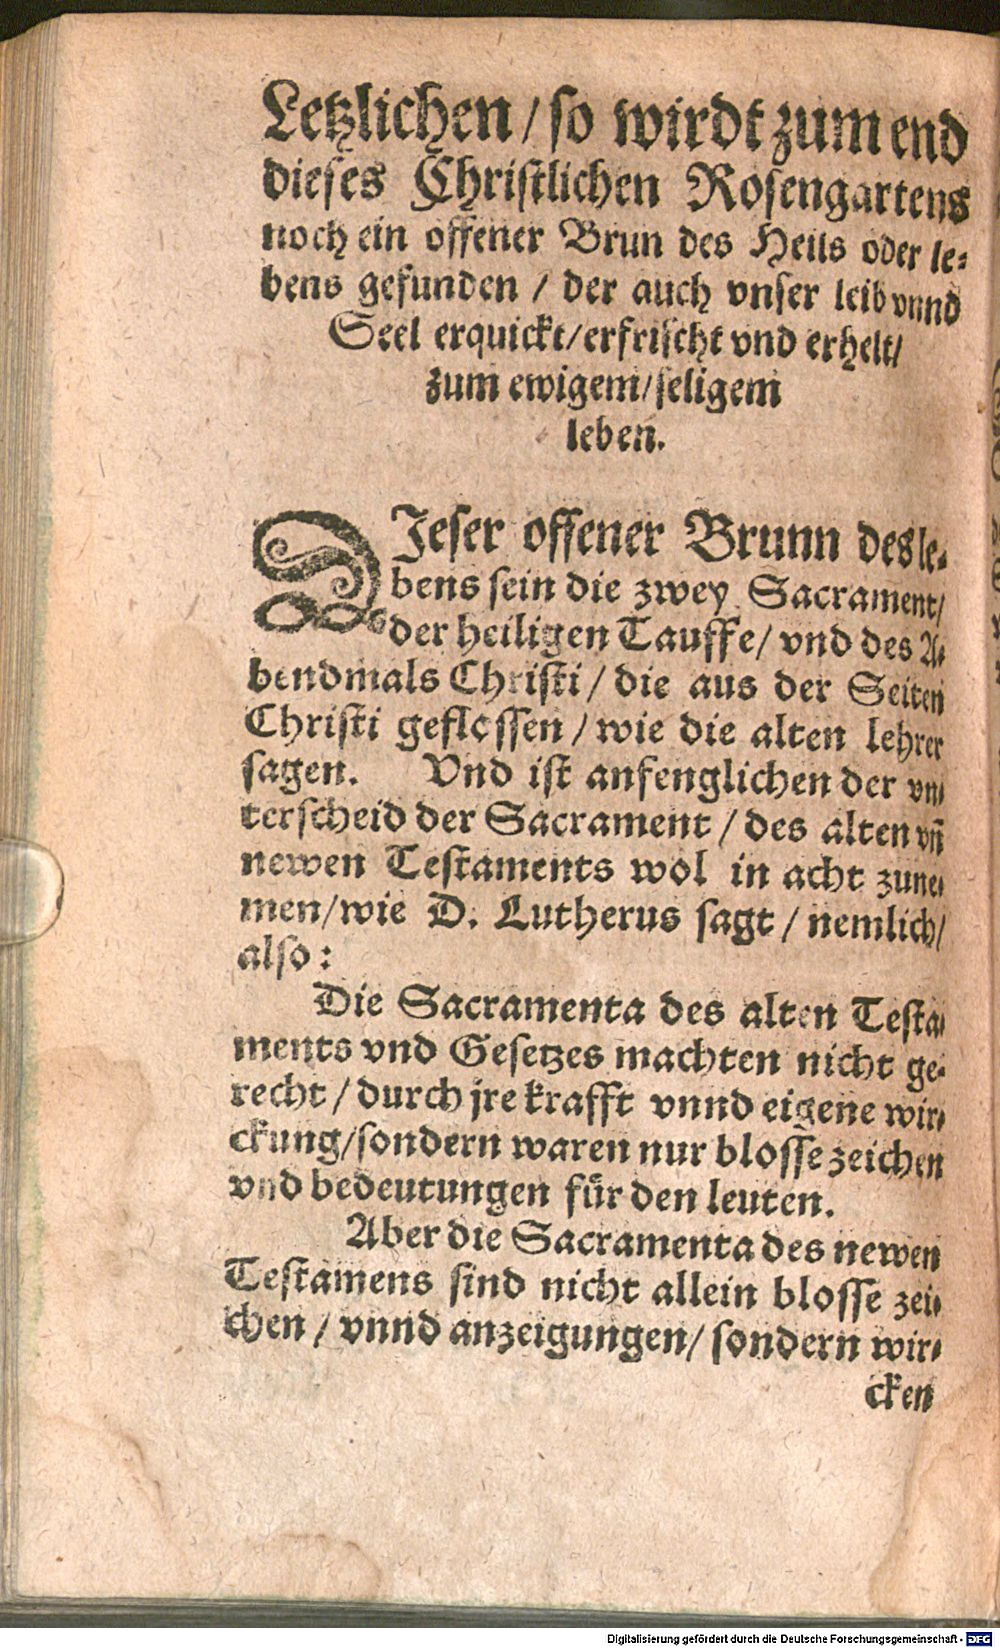 Letzlichen / so wirdt zum end
dieses Christlichen Rosengartens
noch ein offener Brun des Heils oder le-
bens gefunden / der auch vnser leib vnnd
Seel erquickt / erfrischt vnd erhelt /
zum ewigem / seligem
leben.
DJeser offener Brunn des le-
bens sein die zwey Sacrament /
der heiligen Tauffe / vnd des A-
bendmals Christi / die aus der Seiten
Christi geflossen / wie die alten lehrer
sagen. Vnd ist anfenglichen der vn-
terscheid der Sacrament / des alten vñ
newen Testaments wol in acht zune-
men / wie D. Lutherus sagt / nemlich /
also :
Die Sacramenta des alten Testa-
ments vnd Gesetzes machten nicht ge-
recht / durch jre krafft vnnd eigene wir-
ckung / sondern waren nur blosse zeichen
vnd bedeutungen für den leuten.
Aber die Sacramenta des newen
Testamens sind nicht allein blosse zei-
chen / vnnd anzeigungen / sondern wir-
cken
Digitalisierung gefördert durch die Deutsche Forschungsgemeinschaft - DFG